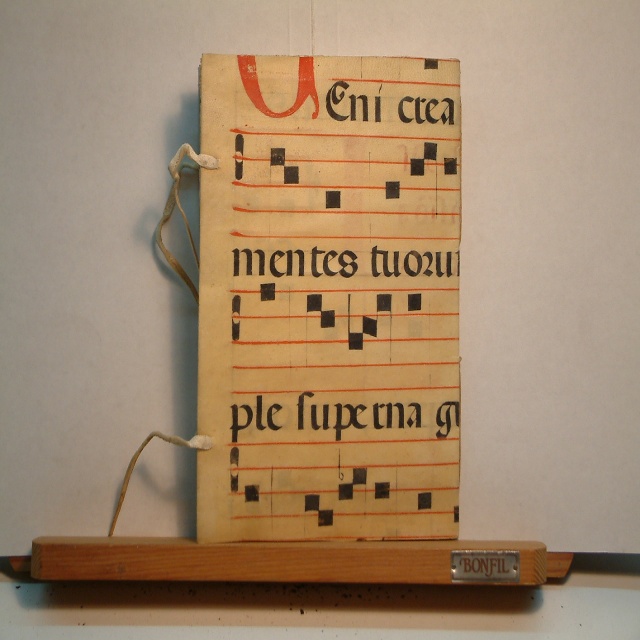 Veni crea
mentes tuoru
ple superna gr
BONFIL